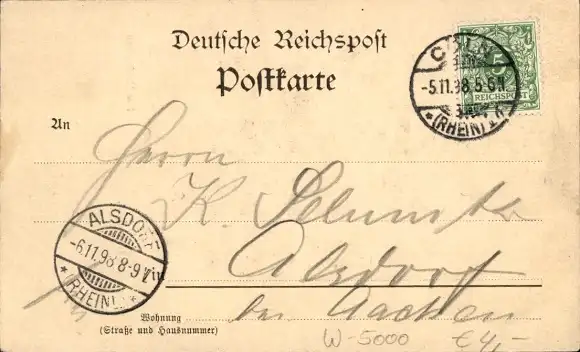 Deutsche Reichspost
Postkarte
CÖLN
5
REICHSPOST
-5.11.98.5
(RHEIN)
An
Herrn
K.
ALSDORF
-6.11.98 8-9V
(RHEINL.)
in
Alsdorf
bei Aachen
Wohnung
(Straße und Hausnummer)
W-5000 €4,-